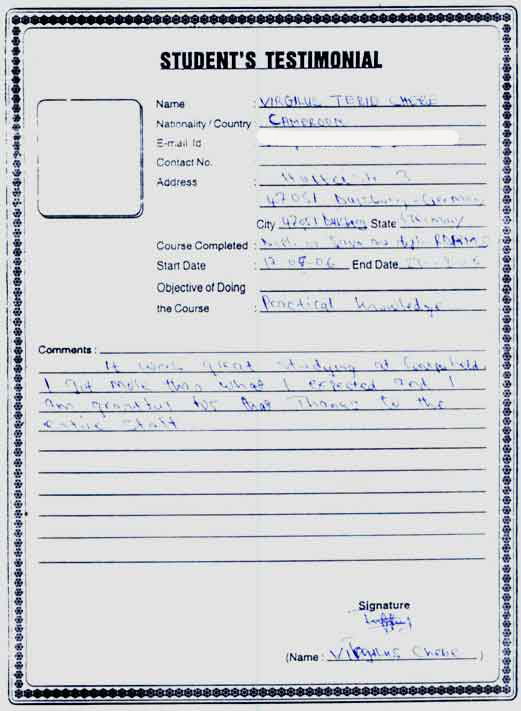 STUDENT'S TESTIMONIAL
Name : VIRGILUS TEBID CHEBE
Nationality / Country : CAMEROON
E-mail Id
Contact No. :
Address : 3
47051 Duisburg - Germany
City 47051 Duisburg State Germany
Course Completed :
Start Date : 17-07-06 End Date
Objective of Doing
the Course : Practical knowledge
Comments :
It was great studying at
I got more than what I expected and I
am grateful for that Thanks to the
entire staff
Signature
(Name : Virgilus Chebe )